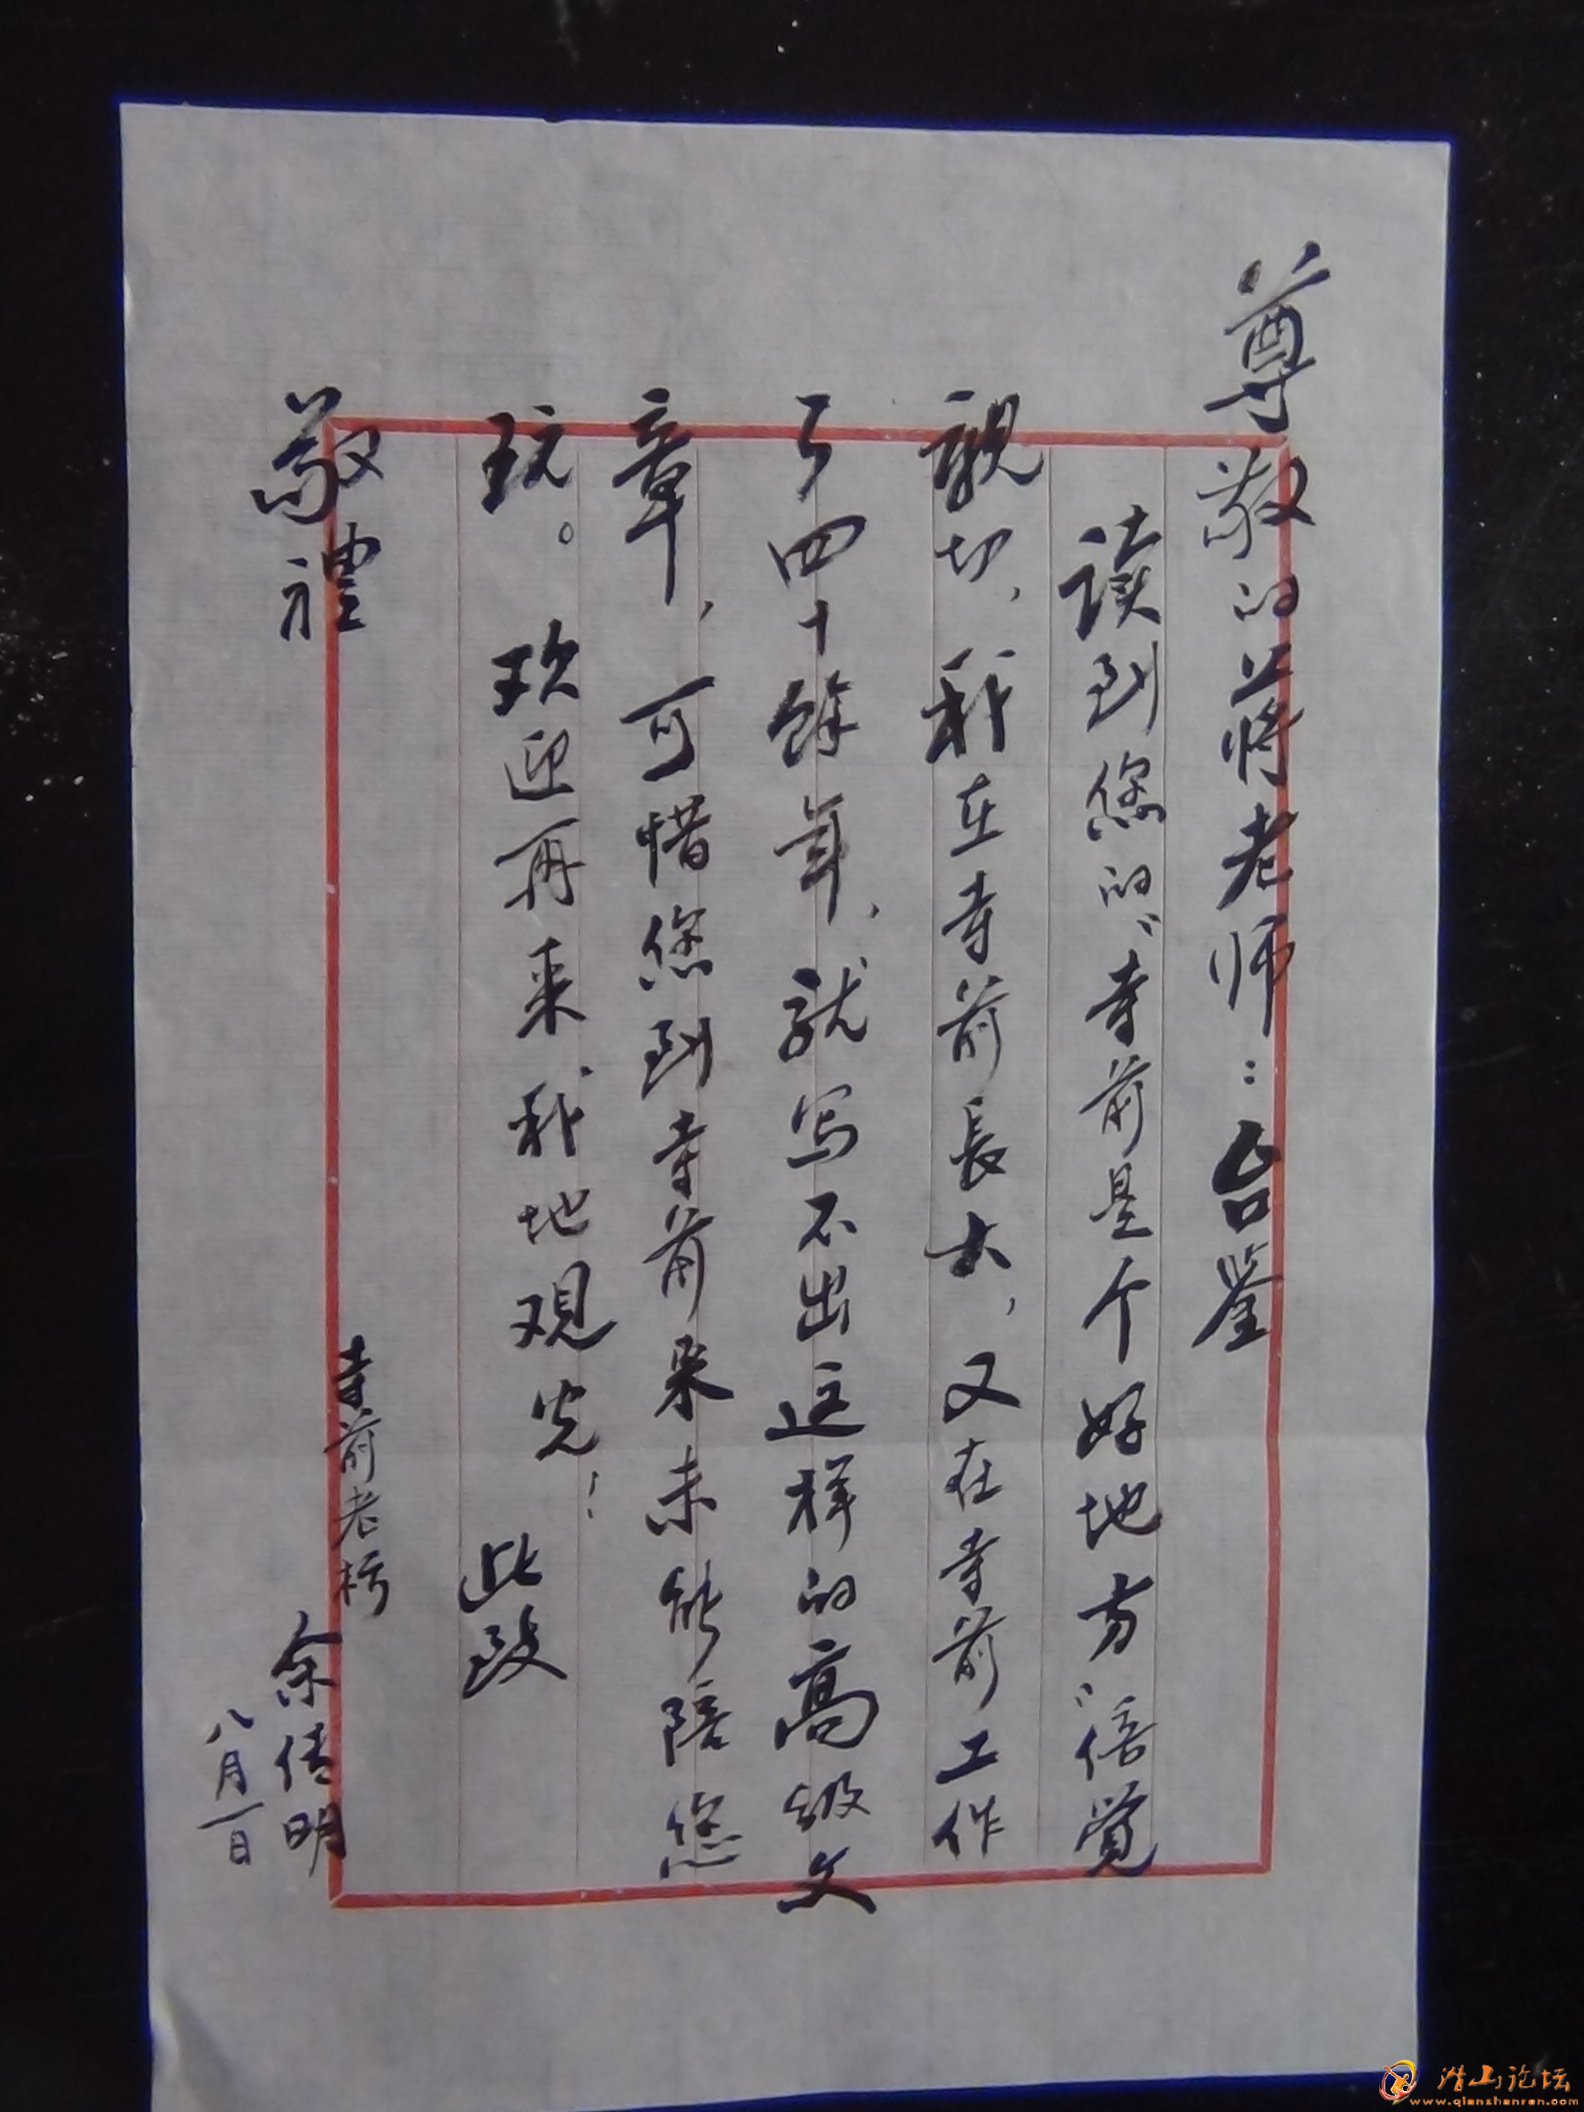 尊敬的蒋老师：台鉴
读到您的“寺前是个好地方”倍觉
親切，我在寺前長大，又在寺前工作
了四十餘年，就写不出这样的高级文
章，可惜您到寺前来未能陪您
玩。欢迎再来我地观光！此致
敬禮
寺前老朽
余传明
八月一日
潜山论坛
www.qianshanren.com